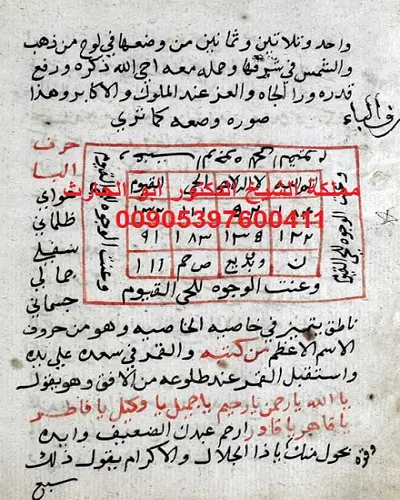 واحد وثلاثين وثمانين من وضعها في لوح من ذهب
والشمس في شرفها وحمله معه احيى الله ذكره ورفع
قدره ورزق الجاه والعز عند الملوك والاكابر وهذا
صورة وضعه كما ترى
حرف الباء
حرف
البا
هواي
ظلماني
سفلي
جمالي
جسماني
القيوم
مملكة الشيخ الدكتور ابو الحارث
00905397600411
١٢٢ ١٣٨ ١٨٣ ٩١
ن ١١١
وعنت الوجوه للحي القيوم
وعنت الوجوه للحي القيوم
وعنت الوجوه للحي القيوم
ناطق يتميز في خاصية الخاصية وهو من حروف
الاسم الاعظم من كتبه والقمر في سعده على يده
واستقبل القمر عند طلوعه من الافق وهو يقول
يا الله يا رحمن يا رحيم يا جميل يا وكيل يا فاطر
يا قاهر يا قادر ارحم عبدك الضعيف وايده
وقوه
بحول منك يا ذا الجلال والاكرام يقول ذلك
سبع